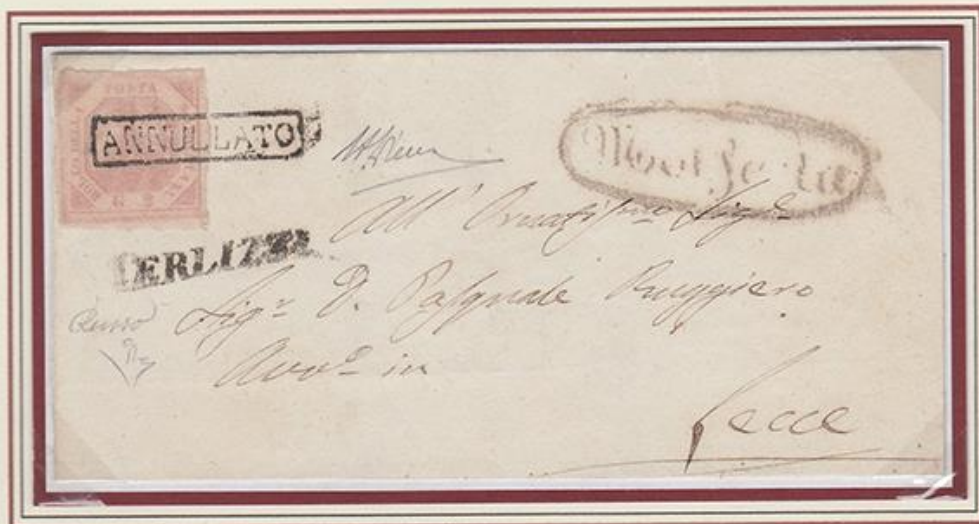 POSTA
ANNULLATO
G 2
Molfetta
All' Ornatissmo Sigre
TERLIZZI
Sigr D. Pasquale Ruggiero
Avvo in
Lecce